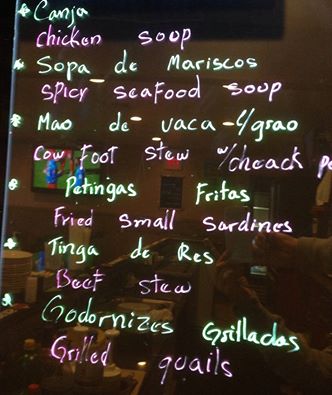 * Canja
Chicken soup
* Sopa de Mariscos
Spicy seafood soup
* Mao de vaca c/grao
Cow Foot stew w/cheack pe
* Petingas Fritas
Fried Small Sardines
* Tinga de Res
Beef stew
* Godornizes Grilladas
Grilled quails